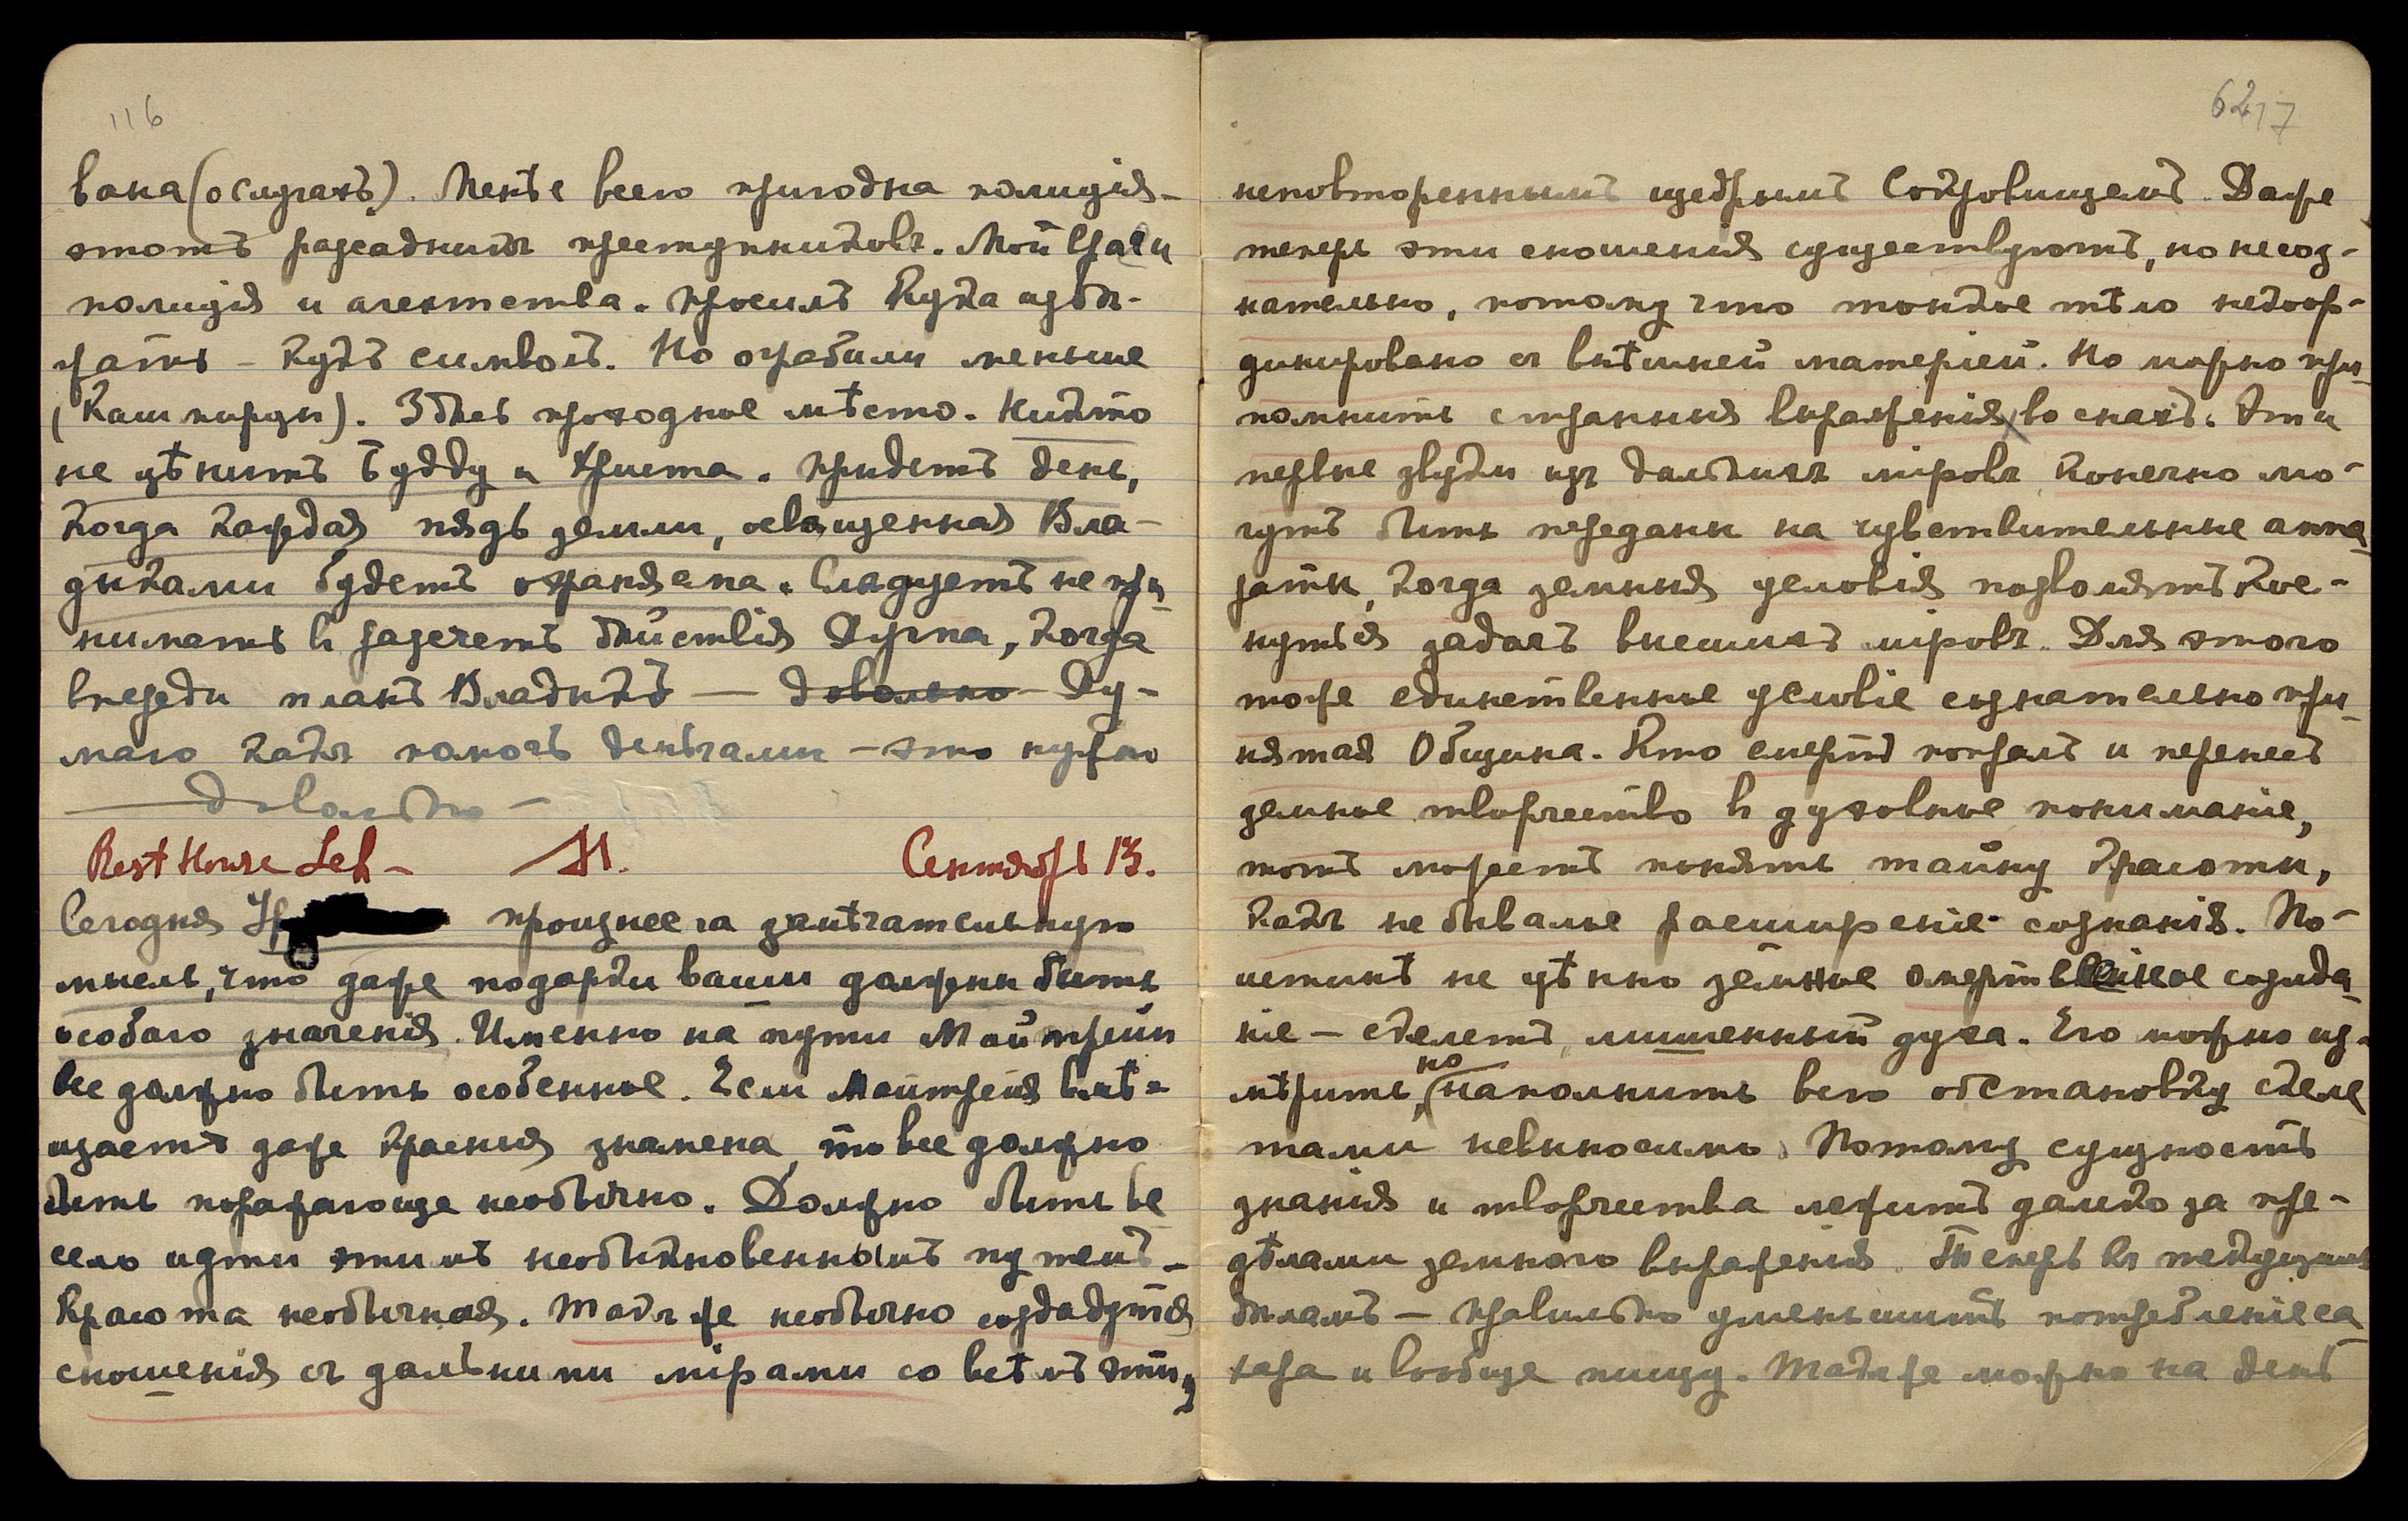 116
вана (о слугахъ). Менѣе всего пригодна полиція –
этотъ разсадникъ преступниковъ. Мои враги
полиція и агентства. Просилъ Кука изби-
рать – Кукъ символъ. Но ограбили меньше
(Кашмирцы). Здѣсь проходное мѣсто. Никто
не цѣнитъ Будду и Христа. Придетъ день,
когда каждая пядь земли, освященная Вла-
дыками будетъ охраняема. Слѣдуетъ не при-
нимать в разсчетъ дѣйствія Дурпа, когда
впереди планъ Владыкъ — довольно – Ду-
маю какъ помочь деньгами – это нужно
— довольно –
Rest House Leh – М. Сентябрь 13.
Сегодня Ур произнесла замѣчательную
мысль, что даже подарки ваши должны быть
особаго значенія. Именно на пути Майтрейи
все должно быть особенное. Если Майтрейя вмѣ-
щаетъ даже красныя знамена, то все должно
быть поражающе необычно. Должно быть ве
село идти этимъ необыкновеннымъ путемъ –
Красота необычная. Такъ же необычно создадутся
сношенія съ дальними мірами со всѣмъ этимъ
6217
неповтореннымъ щедрымъ Сокровищемъ. Даже
теперь эти сношенія существуютъ, но несоз-
нательно, потому что тонкое тѣло некоор-
динировано съ внѣшней матеріей. Но можно при-
помнить странныя выраженія во снахъ. Эти
первые звуки изъ дальнихъ міровъ. Конечно мо-
гутъ быть переданы на чувствительные аппа-
раты, когда земныя условія позволятъ кос-
нуться задачъ внешнихъ міровъ. Для этого
тоже единственное условіе сознательно при-
нятая Община. Кто смерть попралъ и перенесъ
земное творчество в духовное пониманіе,
тотъ можетъ понять тайну Красоты,
какъ небывалое расширеніе сознанія. По-
истинѣ не цѣнно земное омертвленное созида-
ніе – скелетъ, лишенный духа. Его можно из-
мѣрить, но наполнить всю обстановку скеле
тами невыносимо. Потому сущность
знанія и творчества лежитъ далеко за пре-
дѣлами земного выраженія. Теперь къ текущимъ
дѣламъ – правильно уменьшить потребленіе са
хара и вообще пищу. Также можно на день